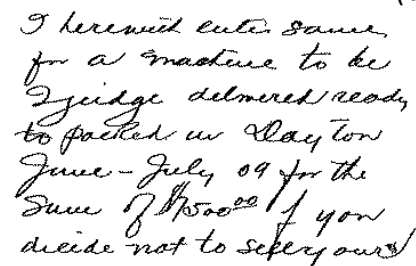 I herewith enter same
for a machine to be
delivered ready
to packed in Dayton
June - July 09 for the
sum of $7,500.00 if you
dicide not to sell yours